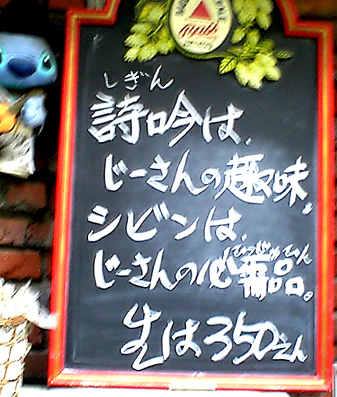 しぎん
詩吟は、
じーさんの趣味。
シビンは、
ひつじゅひん
じーさんの必需品。
生は350えん